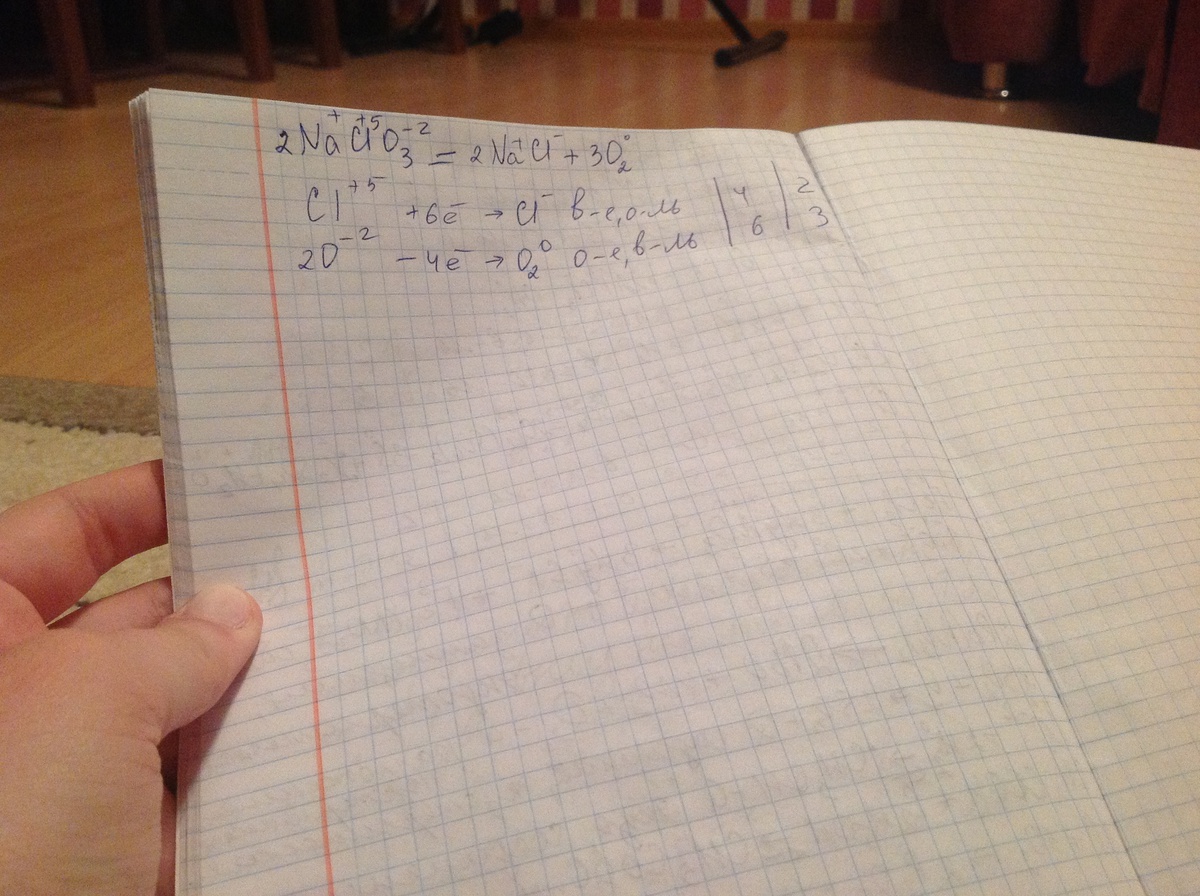 2Na⁺Cl⁺⁵O₃⁻² = 2Na⁺Cl⁻ + 3O₂⁰
Cl⁺⁵ +6e⁻ → Cl⁻ в-е, о-ль | 4 | 2
2O⁻² −4e⁻ → O₂⁰ о-е, в-ль | 6 | 3